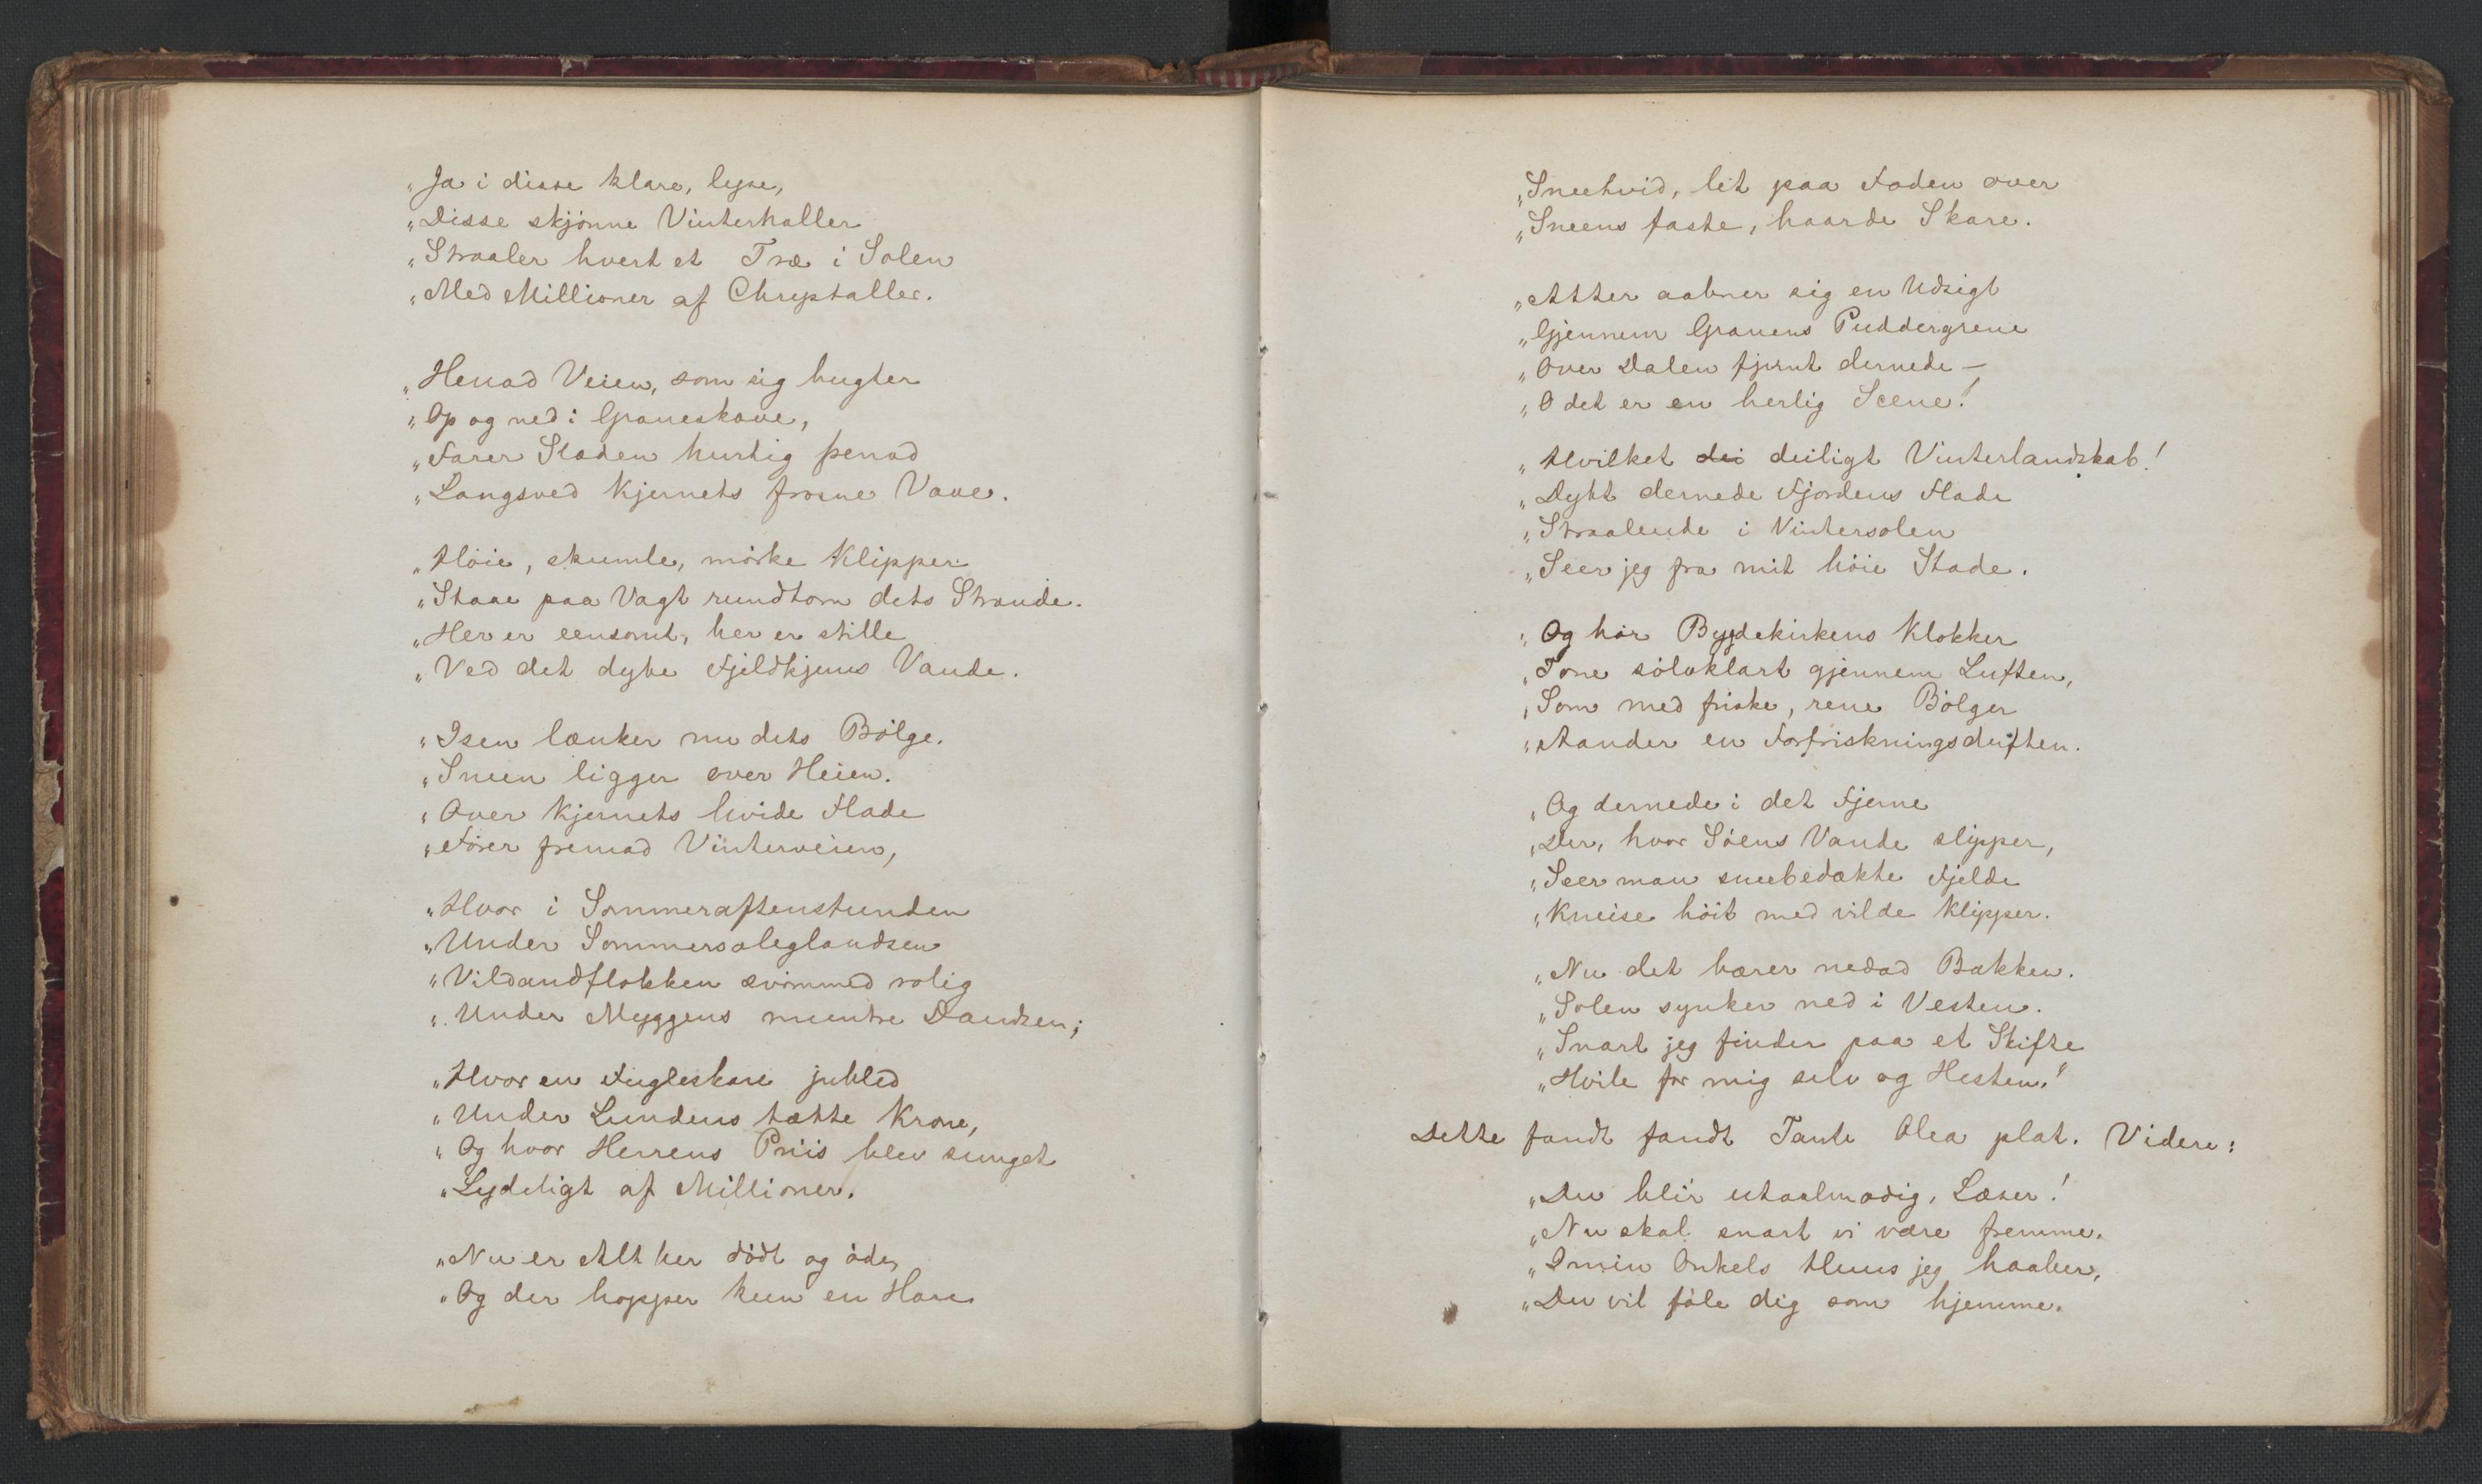 „Ja i disse klare, lyse,
„Disse skjønne Vinterhaller
„Straaler hvert et Træ i Solen
„Med Millioner af Chrystaller.
„Henad Veien, som sig bugter
„Op og ned i Graneskove,
„Farer Slæden hurtig henad
„Langsved Kjernets frosne Vove.
„Høie, skumle, mørke Klipper
„Staae paa Vagt rundtom dets Strande.
„Her er eensomt, her er stille
„Ved det dybe Fjeldkjerns Vande.
„Isen lænker nu dets Bølge.
„Sneen ligger over Heien.
„Over Kjernets hvide Flade
„Fører fremad Vinterveien,
„Hvor i Sommeraftenstunden
„Under Sommersolglandsen
„Vildandflokken svømmed rolig
„Under Myggens muntre Dandsen;
„Hvor en Fugleskare jubled
„Under Lundens tætte Krone,
„Og hvor Herrens Priis blev sunget
„Lydeligt af Millioner.
„Nu er Alt her dødt og øde,
„Og der hopper kun en Hare
„Sneehvid, let paa Foden over
„Sneens faste, haarde Skare.
„Atter aabner sig en Udsigt
„Gjennem Granens Puddergrene
„Over Dalen fjernt dernede –
„O det er en herlig Scene!
„Hvilket dei deiligt Vinterlandskab!
„Dybt dernede Fjordens Flade
„Straalende i Vintersolen
„Seer jeg fra mit høie Stade.
„Og hør Bygdekirkens Klokker
„Tone sølvklart gjennem Luften,
„Som med friske, rene Bølger
„Aander en Forfriskningsduften.
„Og dernede i det Fjerne
„Der, hvor Søens Vande slipper,
„Seer man sneebedækte Fjelde
„Kneise høit med vilde Klipper.
„Nu det bærer nedad Bakken.
„Solen synker ned i Vesten.
„Snart jeg finder paa et Skifte
„Hvile for mig selv og Hesten."
Dette fandt fandt Tante Olea plat. Videre:
„Du blir utaalmodig, Læser!
„Nu skal snart vi være fremme.
„I min Onkels Huus jeg haaber,
„Du vil føle dig som hjemme.